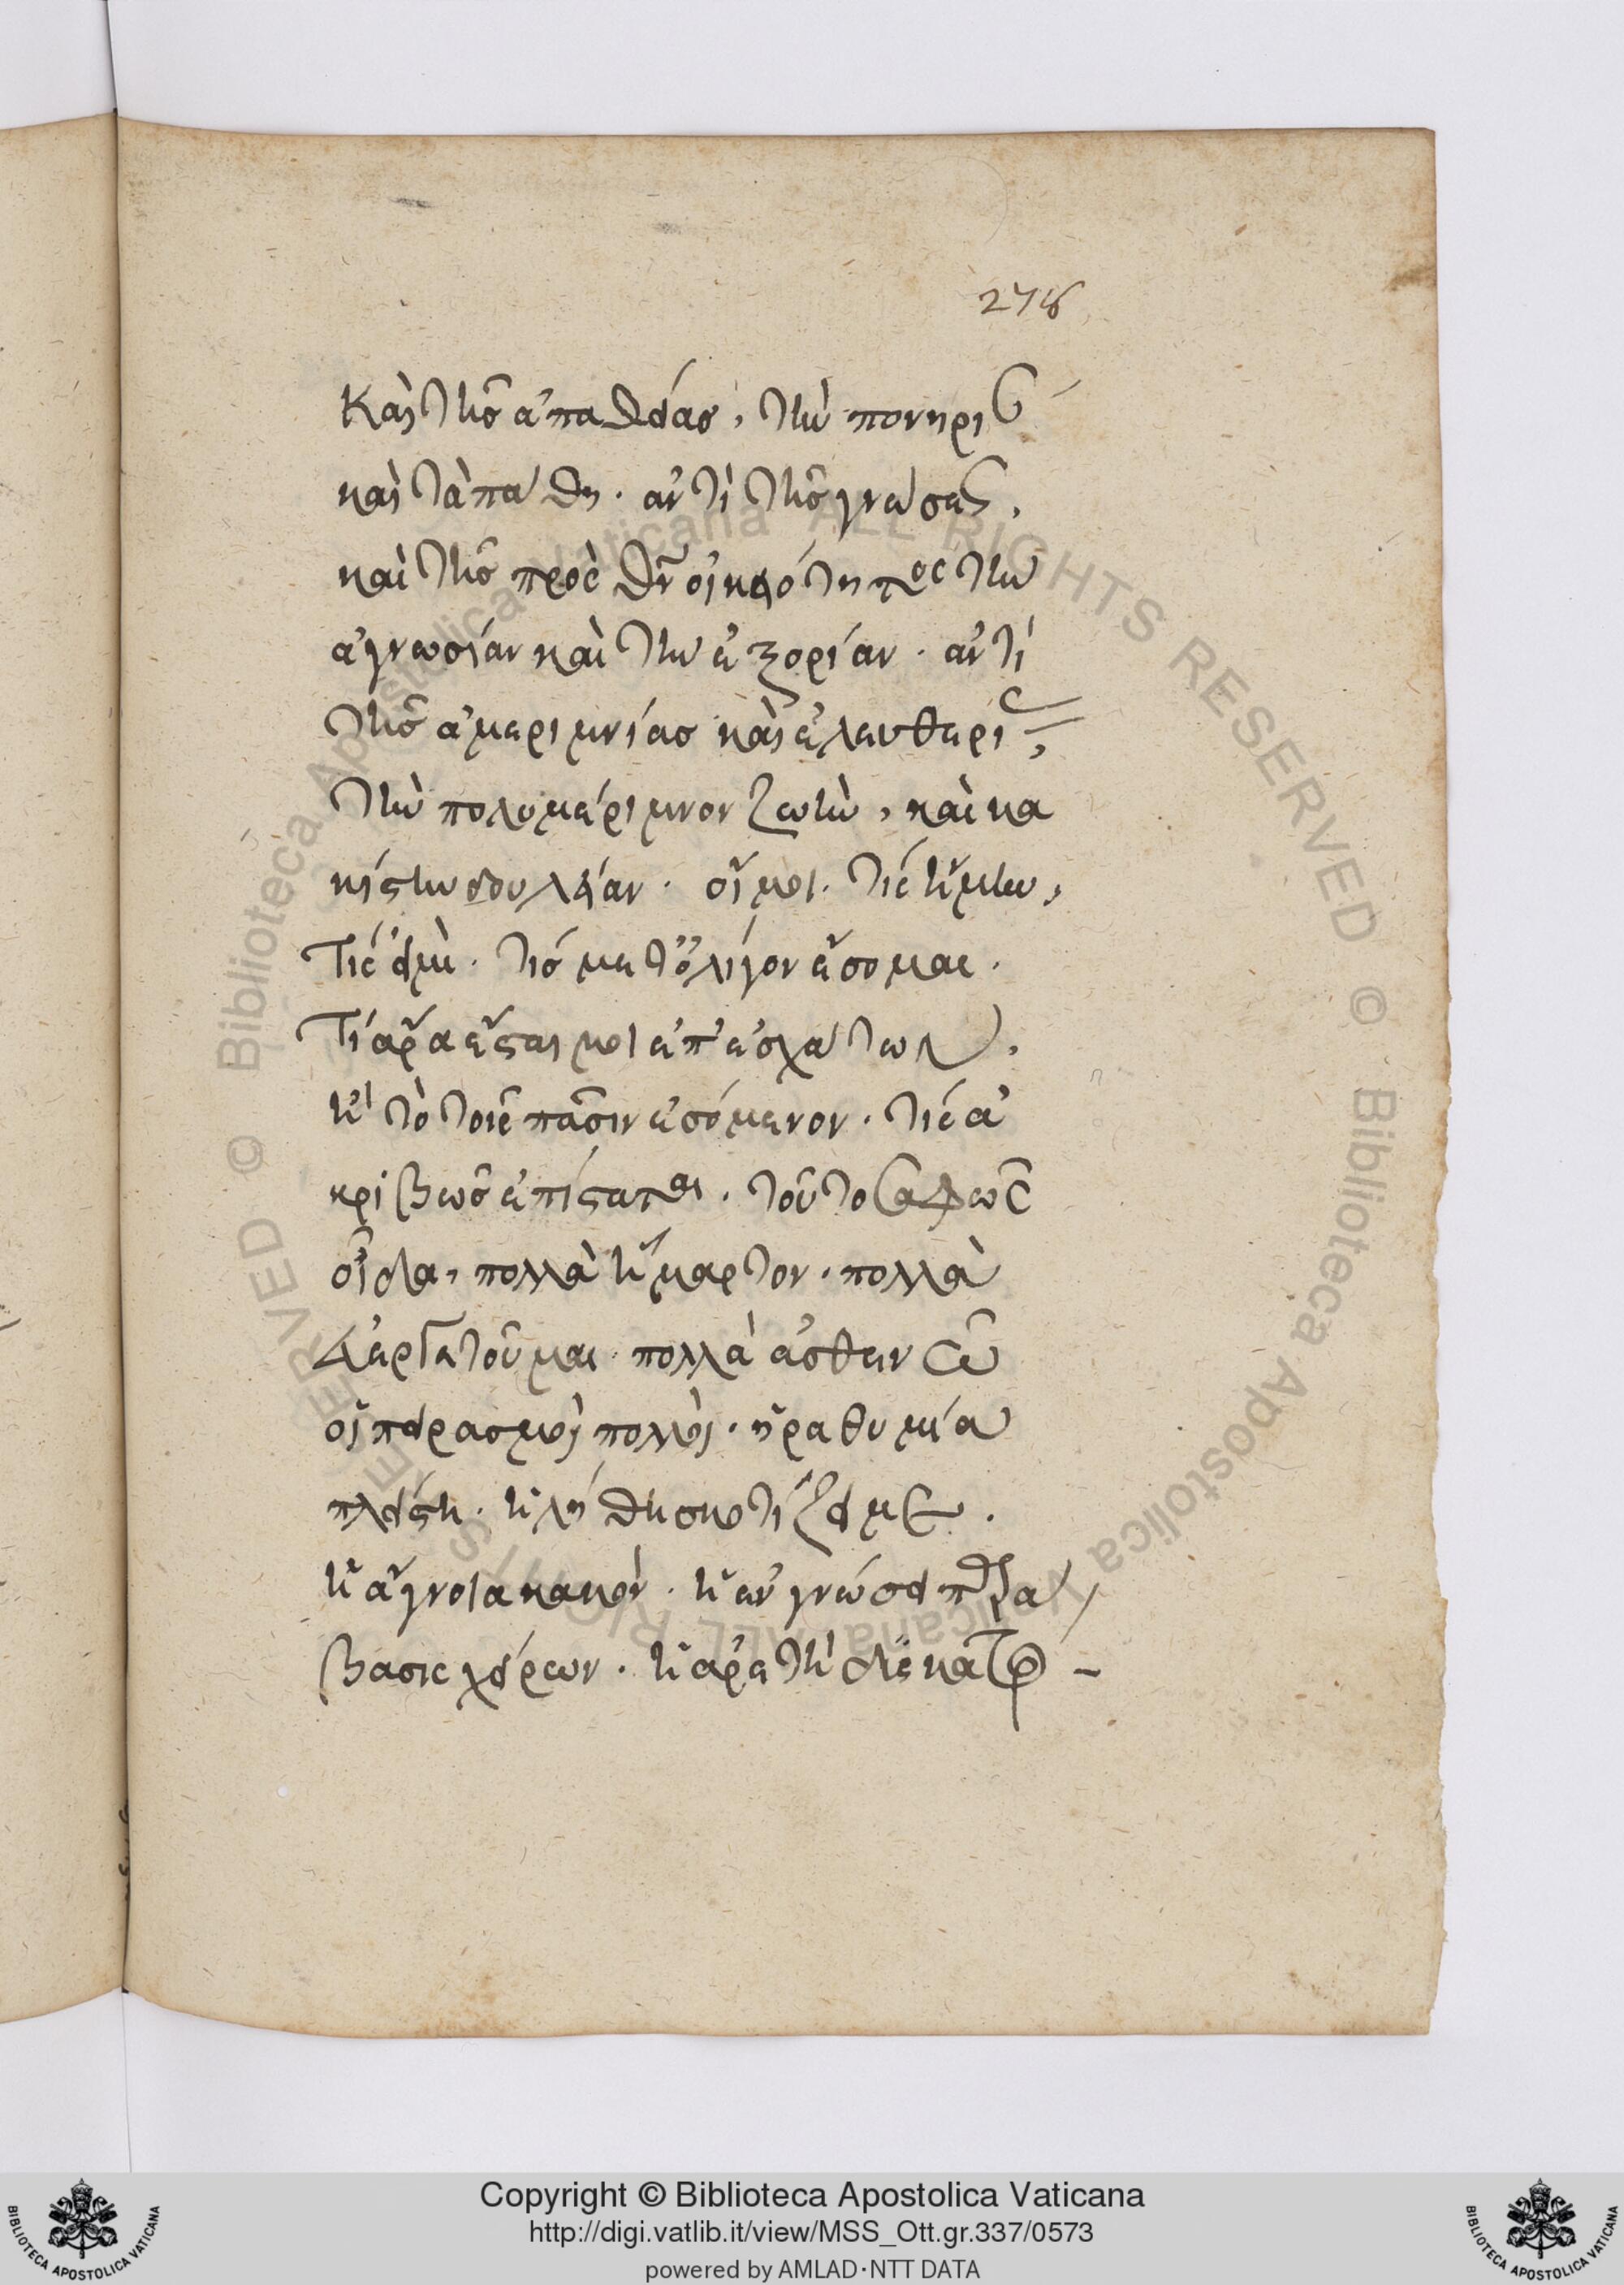 278
Καὶ τῆς ἀπαθείας, τὴν πονηρί(αν)
καὶ τὰ πάθη. ἀντὶ τῆς γνώσεως,
καὶ τῆς πρὸς θν οἰκειότητος τὴν
ἀγνωσίαν καὶ τὴν ἐξορίαν. ἀντὶ
τῆς ἀμεριμνίας καὶ ἐλευθερίας,
τὴν πολυμέριμνον ζωὴν, καὶ κα
κίστην δουλείαν. οἴμοι. τίς ἤμην,
Τίς εἰμὶ. τίς μετ' ὀλίγον ἔσομαι.
Τί ἄρα ἔσται μοι ἐπ' ἐσχάτων,
ἢ τὸ τοῖς πᾶσιν ἐσόμενον. τίς ἀ
κριβῶς ἐπίσταται. τοῦτο σαφῶς
οἶδα, πολλὰ ἥμαρτον. πολλὰ
πολλὰ ἀσθενῶ
οἱ πειρασμοὶ πολλοὶ. ἡ ῥαθυμία
πλείστη. ἡ λήθη σκοτίζει με.
ἡ ἄγνοια κακὸν. ἡ ἐν γνώσει παρά
βασις χεῖρον. ἡ ἀρετὴ
Copyright © Biblioteca Apostolica Vaticana
http://digi.vatlib.it/view/MSS_Ott.gr.337/0573
powered by AMLAD·NTT DATA
BIBLIOTECA APOSTOLICA VATICANA
BIBLIOTECA APOSTOLICA VATICANA
© Biblioteca Apostolica Vaticana ALL RIGHTS RESERVED
© Biblioteca Apostolica Vaticana ALL RIGHTS RESERVED